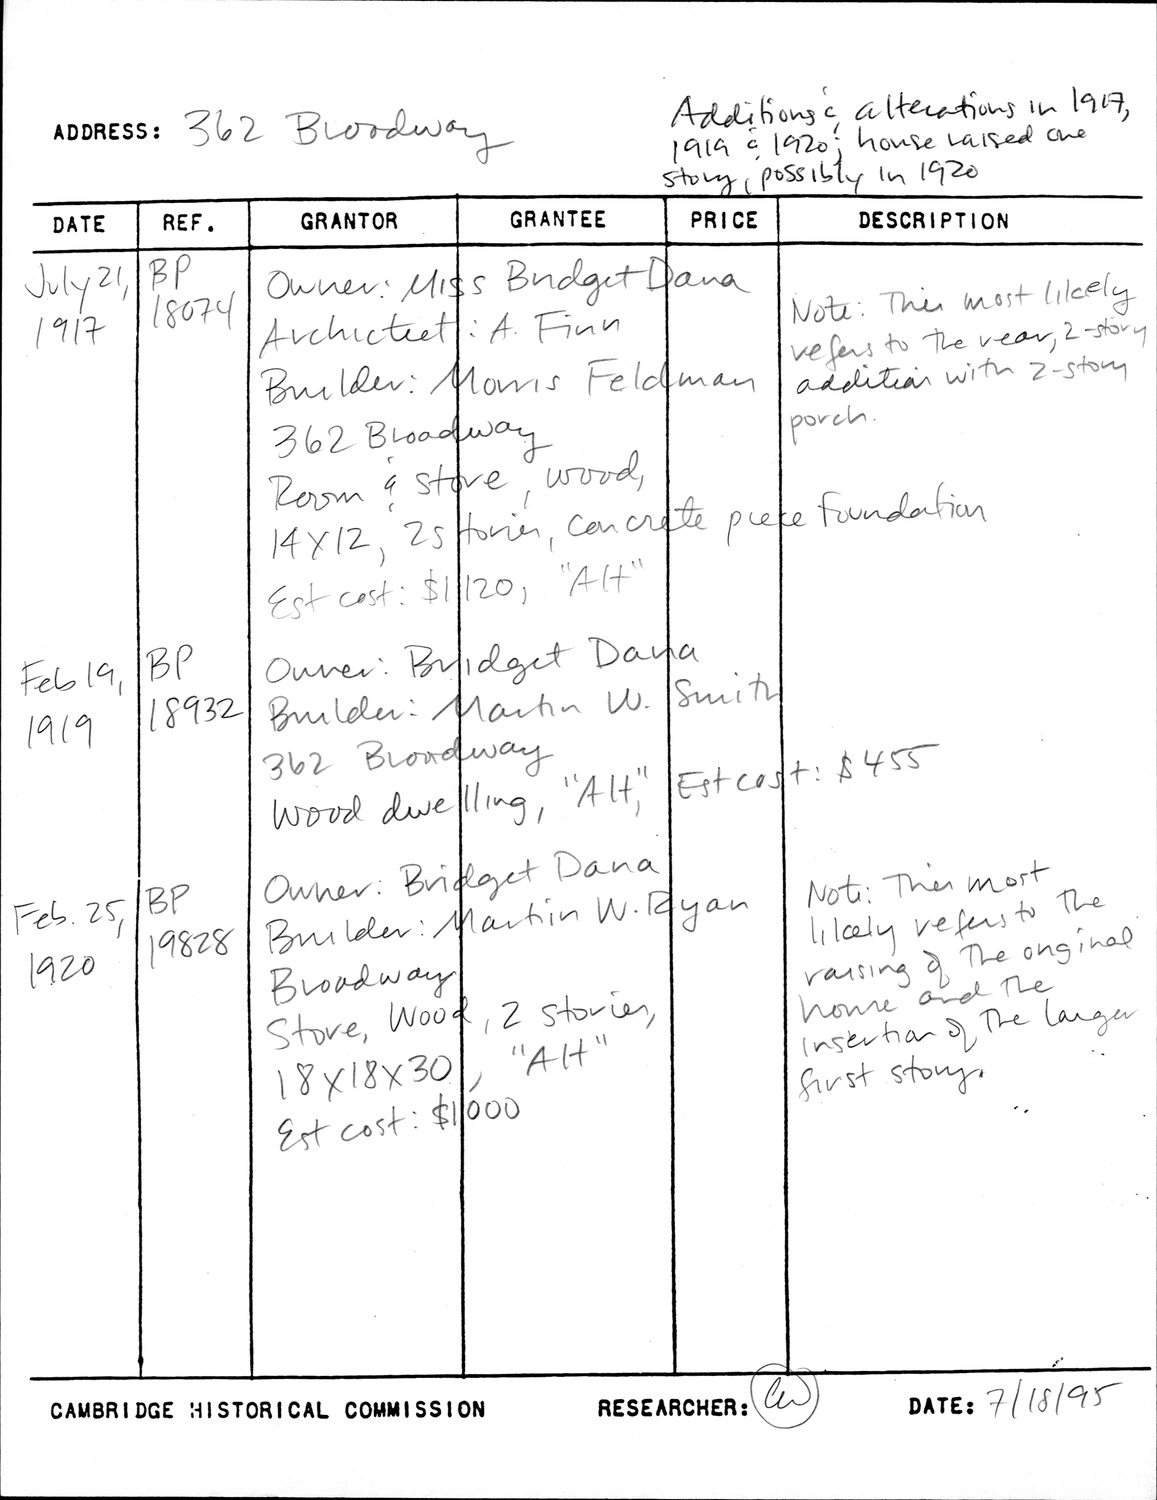 ADDRESS: 362 Broadway
Additions & alterations in 1917,
1919 & 1920; house raised one
story, possibly in 1920
DATE REF. GRANTOR GRANTEE PRICE DESCRIPTION
July 21,
1917
BP
18074
Owner: Miss Bridget Dana
Architect: A. Finn
Builder: Morris Feldman
362 Broadway
Room & store, wood,
14x12, 2 stories, concrete piece foundation
Est cost: $1120, "Alt"
Note: This most likely
refers to the rear, 2-story
addition with 2-story
porch.
Feb 19,
1919
BP
18932
Owner: Bridget Dana
Builder: Martin W. Smith
362 Broadway
Wood dwelling, "Alt," Est cost: $455
Feb. 25,
1920
BP
19828
Owner: Bridget Dana
Builder: Martin W. Ryan
Broadway
Store, Wood, 2 stories,
18x18x30, "Alt"
Est cost: $1000
Note: This most
likely refers to the
raising of the original
home and the
insertion of the larger
first story.
CAMBRIDGE HISTORICAL COMMISSION RESEARCHER: DATE: 7/18/95